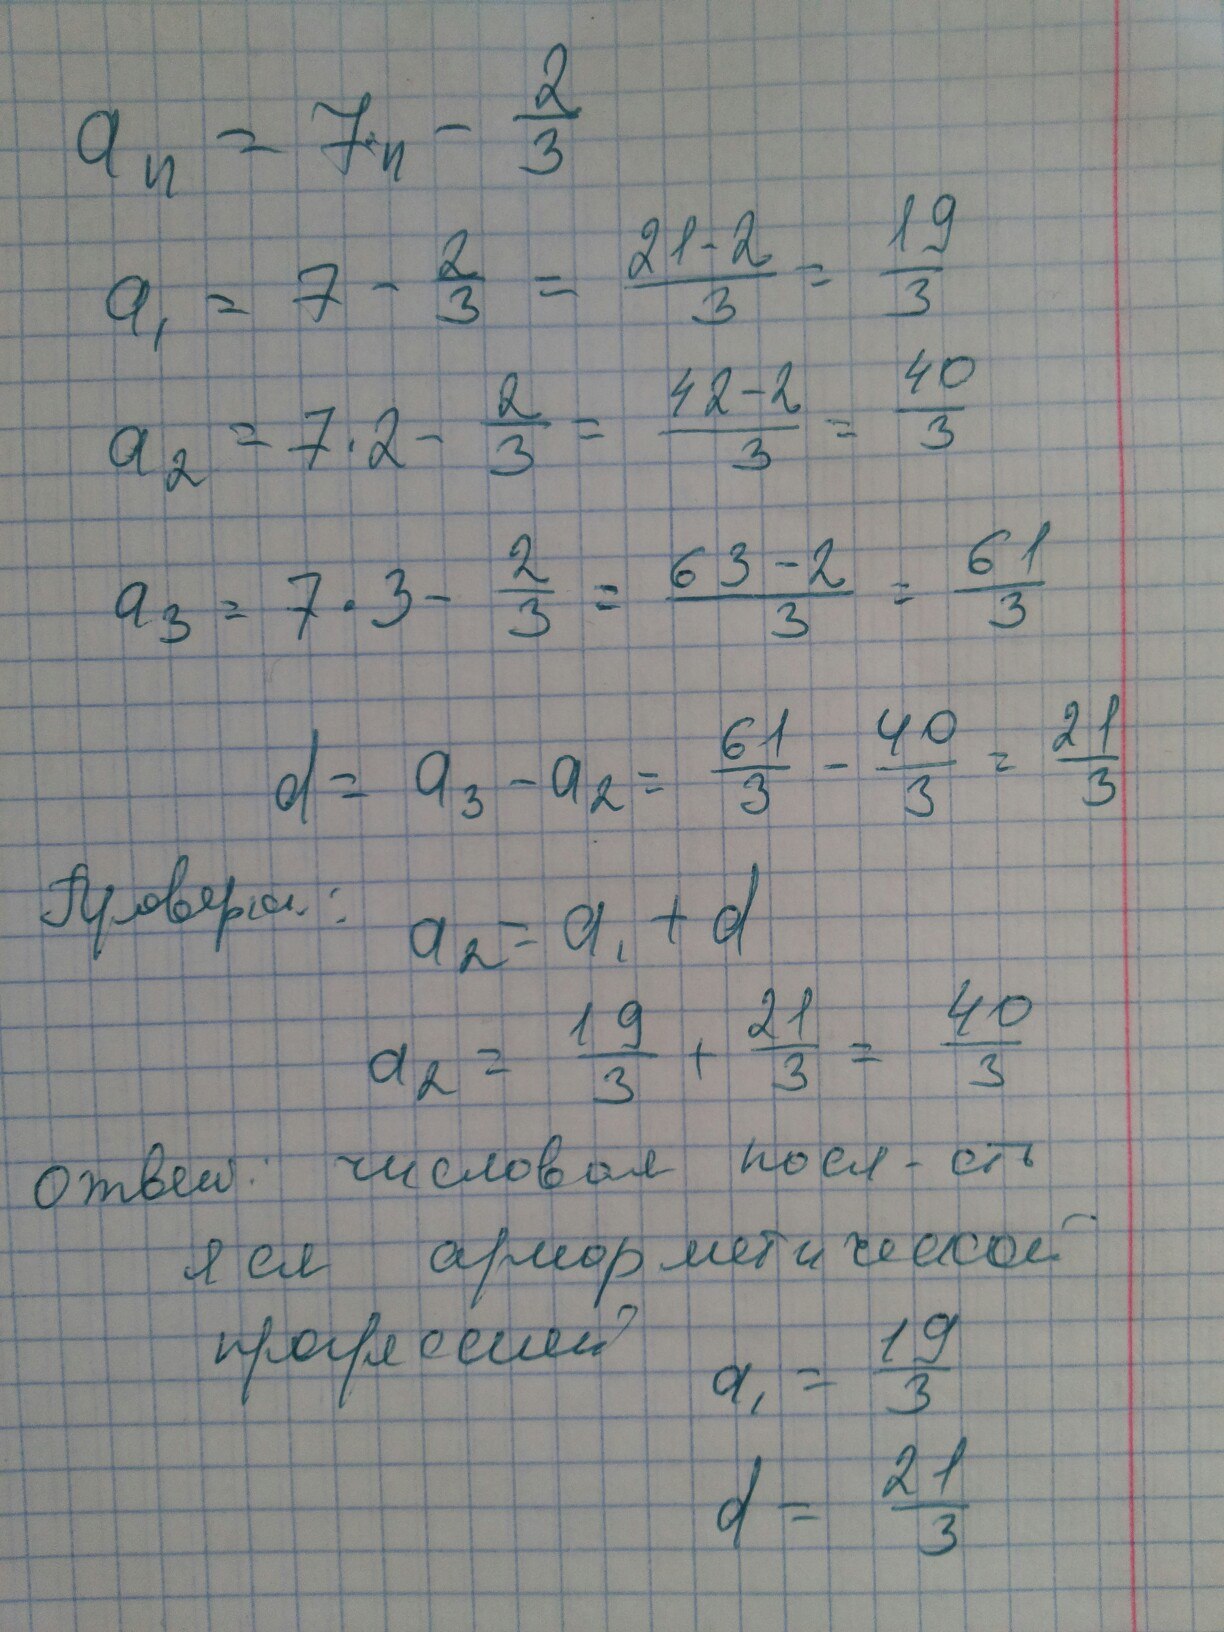 aₙ = 7·n − 2/3
a₁ = 7 − 2/3 = (21−2)/3 = 19/3
a₂ = 7·2 − 2/3 = (42−2)/3 = 40/3
a₃ = 7·3 − 2/3 = (63−2)/3 = 61/3
d = a₃ − a₂ = 61/3 − 40/3 = 21/3
Проверка: a₂ = a₁ + d
a₂ = 19/3 + 21/3 = 40/3
Ответ: числовая посл-сть
яся арифметической
прогрессией
a₁ = 19/3
d = 21/3